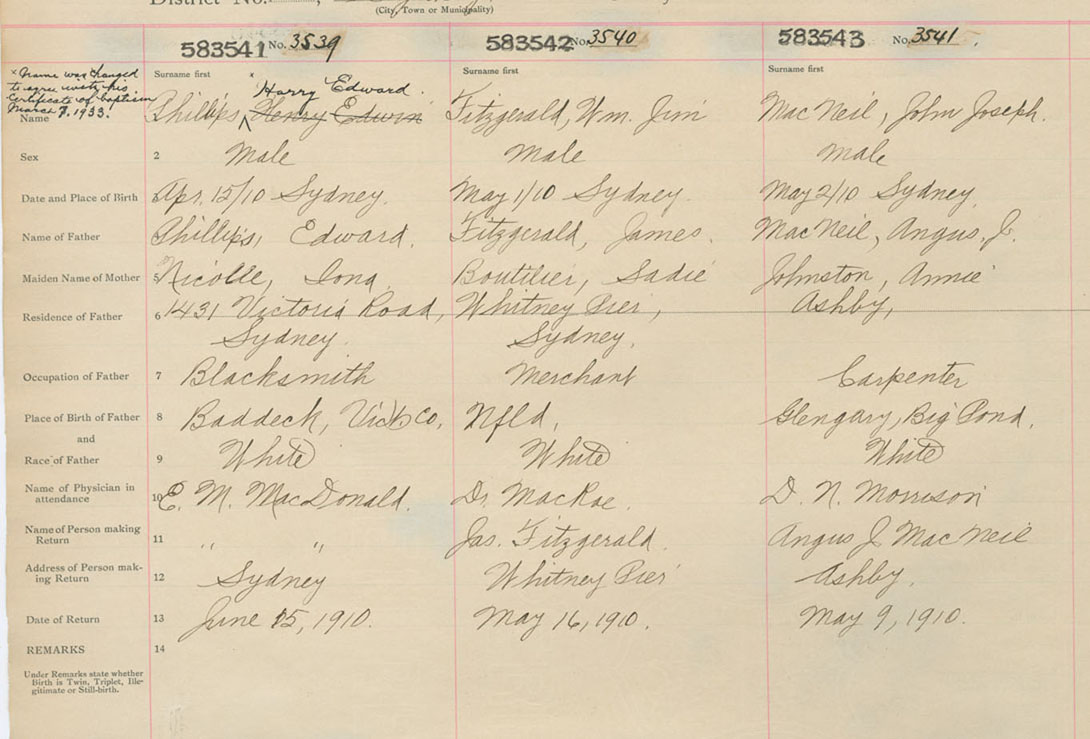 District No.
(City, Town or Municipality)
583541 No. 3539
583542 No. 3540
583543 No. 3541
× Name was changed
to agree with his
Certificate of baptism
March 7. 1933.
Surname first
Surname first
Surname first
× Harry Edward.
Name Phillips, Henry Edwin Fitzgerald, Wm. Jim Mac Neil, John Joseph.
Sex 2 Male Male Male
Date and Place of Birth Apr. 15/10 Sydney. May 1/10 Sydney. May 2/10 Sydney
Name of Father Phillips, Edward. Fitzgerald, James. Mac Neil, Angus. J.
Maiden Name of Mother 5 Nicolle, Iona Boutilier, Sadie Johnston, Annie
Residence of Father 6 1431 Victoria Road, Whitney Pier, Ashby,
Sydney. Sydney.
Occupation of Father 7 Blacksmith Merchant Carpenter
Place of Birth of Father 8 Baddeck, Vict. Co. Nfld. Glengary, Big Pond.
and
Race of Father 9 White White White
Name of Physician in
attendance 10 E. M. MacDonald. Dr. MacRae. D. N. Morrison
Name of Person making
Return 11 " " Jas. Fitzgerald. Angus J Mac Neil
Address of Person mak-
ing Return 12 Sydney Whitney Pier Ashby.
Date of Return 13 June 15, 1910. May 16, 1910. May 9, 1910.
REMARKS 14
Under Remarks state whether
Birth is Twin, Triplet, Ille-
gitimate or Still-birth.